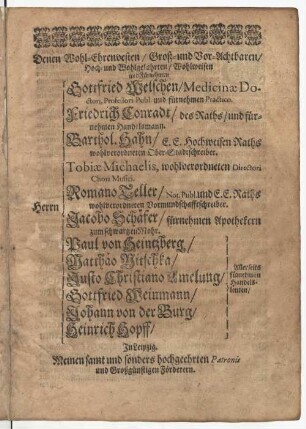 Denen Wohl-Ehrenvesten / Groß- und Vor-Achtbaren /
Hoch- und Wohlgelahrten / Wohlweisen
und Fürnehmen
Gottfried Welschen / Medicinæ Do-
ctori, Professori Publ. und fürnehmen Practico.
Friedrich Conradt / des Raths / und für-
nehmen Handelsmann.
Barthol. Hahn / E. E. Hochweisen Raths
wohlverordneten Ober-Stadtschreiber.
Tobiæ Michaelis, wohlverordneten Directori
Chori Musici.
Romano Teller / Not. Publ. und E. E. Raths
wohlverordneten Vormundschafftschreiber.
Herrn
Jacobo Schäfer / fürnehmen Apothekern
zum schwartzen Mohr.
Paul von Heintzberg /
Matthäo Nitschka /
Justo Christiano Amelung /
Gottfried Weinmann /
Johann von der Burg /
Heinrich Hopff /
Allerseits
fürnehmen
Handels-
leuten /
In Leipzig.
Meinen samt und sonders hochgeehrten Patronis
und Großgünstigen Förderern.